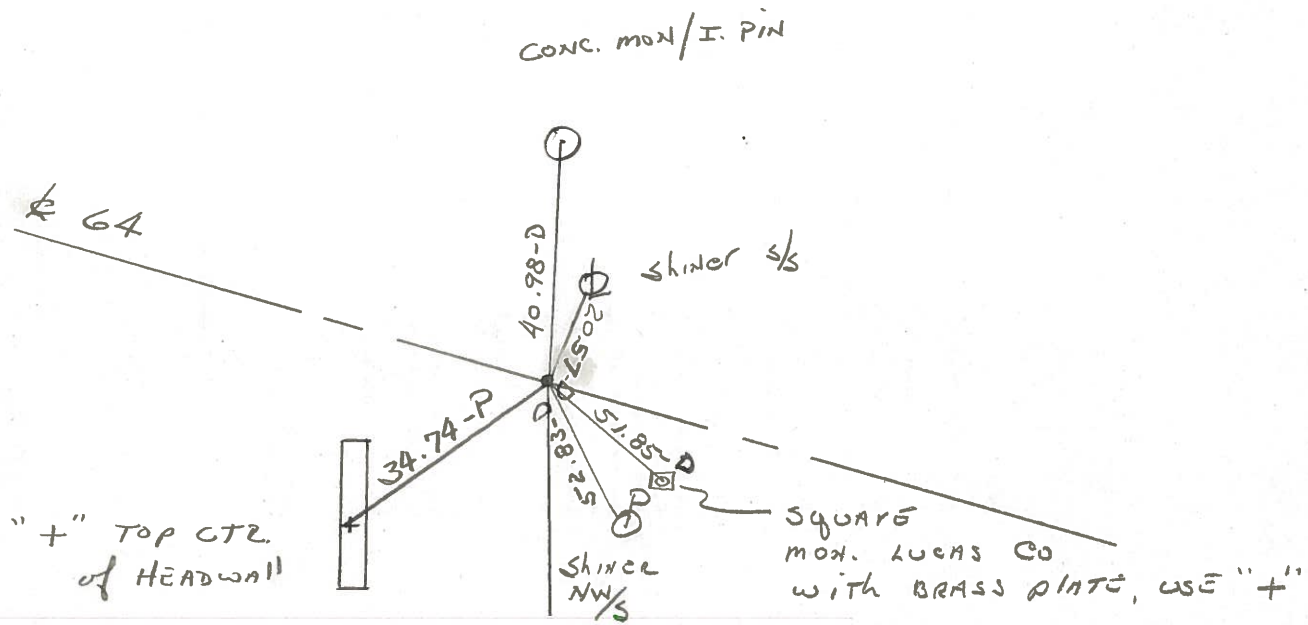 CONC. MON/I. PIN
℄ 64
40.98-D
Shiner S/S
20.57-D
34.74-P
51.85-D
52.83-D
"+" TOP CTR.
of HEADWAll
SHINER
NW/S
SQUARE
MON. LUCAS CO
with BRASS PlATE, USE "+"